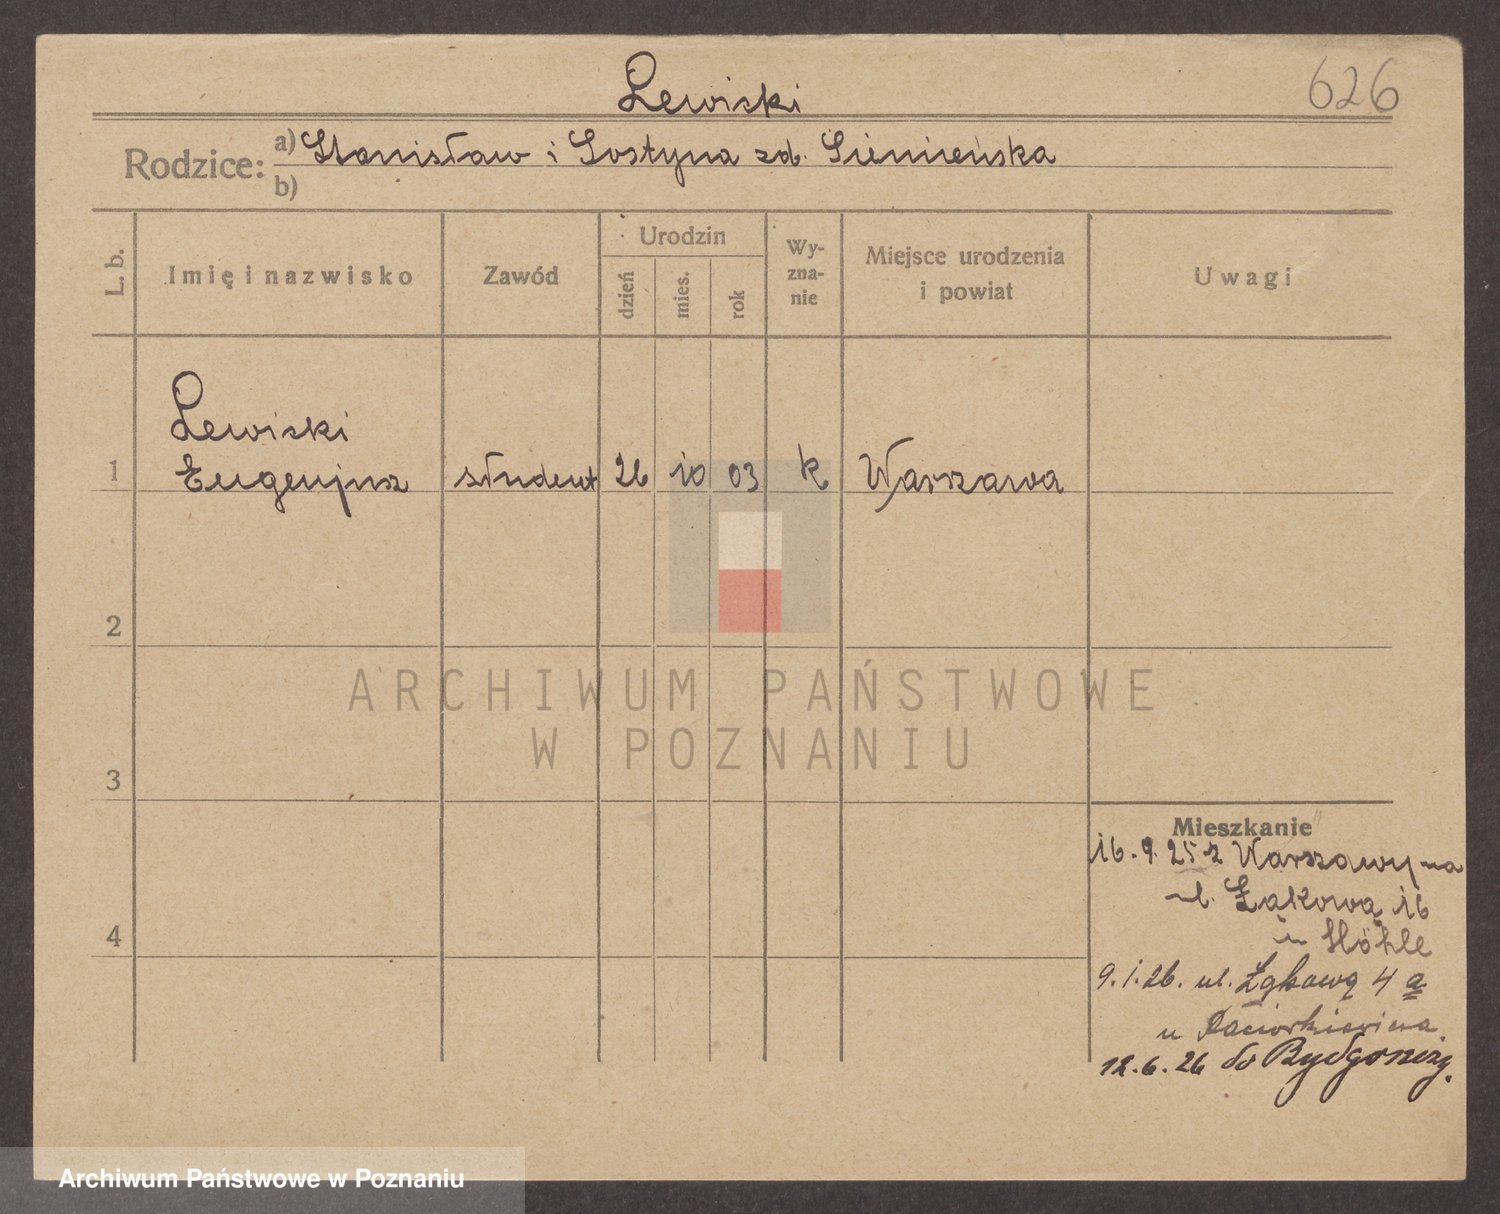 Lewiski
626
Rodzice:
a) Stanisław i Sostyna zd. Sieniewska
b)
L. b.
Imię i nazwisko
Zawód
Urodzin
dzień
mies.
rok
Wy-
zna-
nie
Miejsce urodzenia
i powiat
Uwagi
Lewiski
1 Eugenjusz student 26 10 03 k Warszawa
2
3
4
Mieszkanie
16.9.25 z Warszawy na
ul. Łąkową 16
u Höhle
9.1.26. ul. Łąkową 4 a
u
12.6.26 do Bydgoszczy.
ARCHIWUM PAŃSTWOWE
W POZNANIU
Archiwum Państwowe w Poznaniu